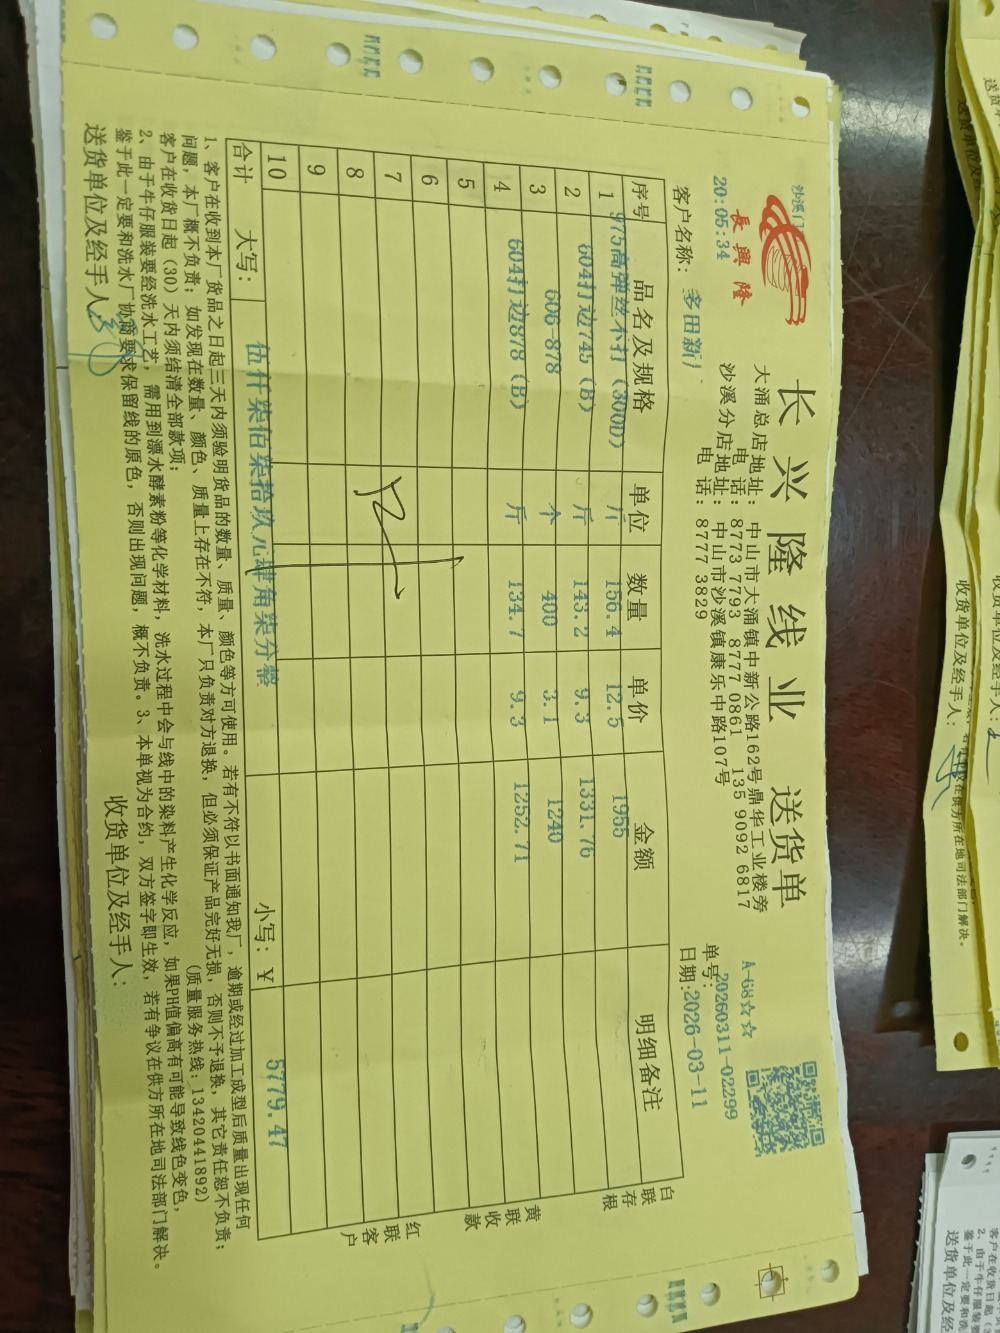 長興隆
长兴隆线业 送货单
大涌总店地址: 中山市大涌镇中新公路162号鼎华工业楼旁
电 话: 8773 7793 8777 0861 135 9092 6817
沙溪分店地址: 中山市沙溪镇康乐中路107号
电 话: 8777 3829
沙溪门
20:05:34
A-68☆☆
单号:20260311-02299
客户名称: 多田新
日期:2026-03-11
序号 品名及规格 单位 数量 单价 金额 明细备注
1 975高弹丝不打(300D) 斤 156.4 12.5 1955
2 604打边745(B) 斤 143.2 9.3 1331.76
3 606-878 个 400 3.1 1240
4 604打边878(B) 斤 134.7 9.3 1252.71
5
6
7
8
9
10
合计 大写: 伍仟柒佰柒拾玖元肆角柒分整 小写: ¥ 5779.47
白联存根
黄联收款
红联客户
1、客户在收到本厂货品之日起三天内须验明货品的数量、质量、颜色等方可使用。若有不符以书面通知我厂，逾期或经过加工成型后质量出现任何
问题，本厂概不负责；如发现在数量、颜色、质量上存在不符，本厂只负责对方退换，但必须保证产品完好无损，否则不予退换，其它责任恕不负责；
客户在收货日起（30）天内须结清全部款项； (质量服务热线: 13420441892)
2、由于牛仔服装要经洗水工艺，需用到漂水酵素粉等化学材料，洗水过程中会与线中的染料产生化学反应，如果PH值偏高有可能导致线色变色，
鉴于此一定要和洗水厂协商要求保留线的原色，否则出现问题，概不负责。3、本单视为合约，双方签字即生效，若有争议在供方所在地司法部门解决。
送货单位及经手人:
收货单位及经手人:
收货单位及经手人:
客户在收货日起
2、由于牛仔服装要
鉴于此一定要和洗
送货单位及经